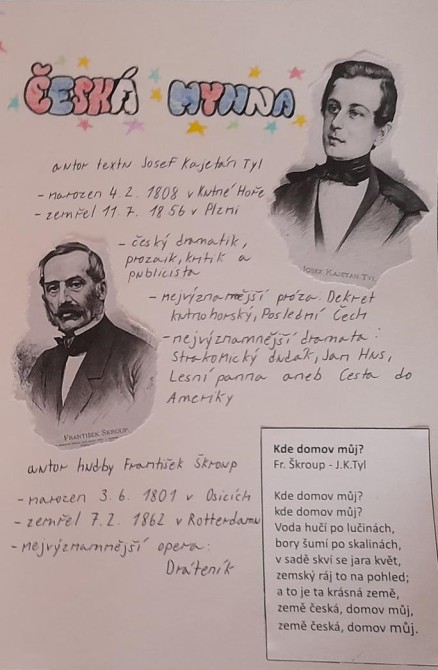 ČESKÁ HYMNA
autor textu Josef Kajetán Tyl
- narozen 4. 2. 1808 v Kutné Hoře
- zemřel 11. 7. 1856 v Plzni
JOSEF KAJETAN TYL
- český dramatik,
prozaik, kritik a
publicista
- nejvýznamnější próza: Dekret
kutnohorský, Poslední Čech
- nejvýznamnější dramata:
Strakonický dudák, Jan Hus,
Lesní panna aneb Cesta do
Ameriky
FRANTIŠEK ŠKROUP
autor hudby František Škroup
- narozen 3. 6. 1801 v Osicích
- zemřel 7. 2. 1862 v Rotterdamu
- nejvýznamnější opera:
Dráteník
Kde domov můj?
Fr. Škroup - J.K.Tyl
Kde domov můj?
kde domov můj?
Voda hučí po lučinách,
bory šumí po skalinách,
v sadě skví se jara květ,
zemský ráj to na pohled;
a to je ta krásná země,
země česká, domov můj,
země česká, domov můj.